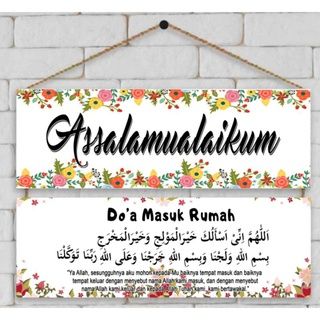 Assalamualaikum
Do'a Masuk Rumah
اَللّٰهُمَّ اِنِّىْ اَسْأَلُكَ خَيْرَالْمَوْلِجِ وَخَيْرَالْمَخْرَجِ
بِسْمِ اللهِ وَلَجْنَا وَبِسْمِ اللهِ خَرَجْنَا وَعَلَى اللهِ رَبِّنَا تَوَكَّلْنَا
"Ya Allah, sesungguhnya aku mohon kepada-Mu baiknya tempat masuk dan baiknya
tempat keluar dengan menyebut nama Allah kami masuk, dan dengan menyebut
nama Allah kami keluar dan kepada Allah Tuhan kami, kami bertawakal."